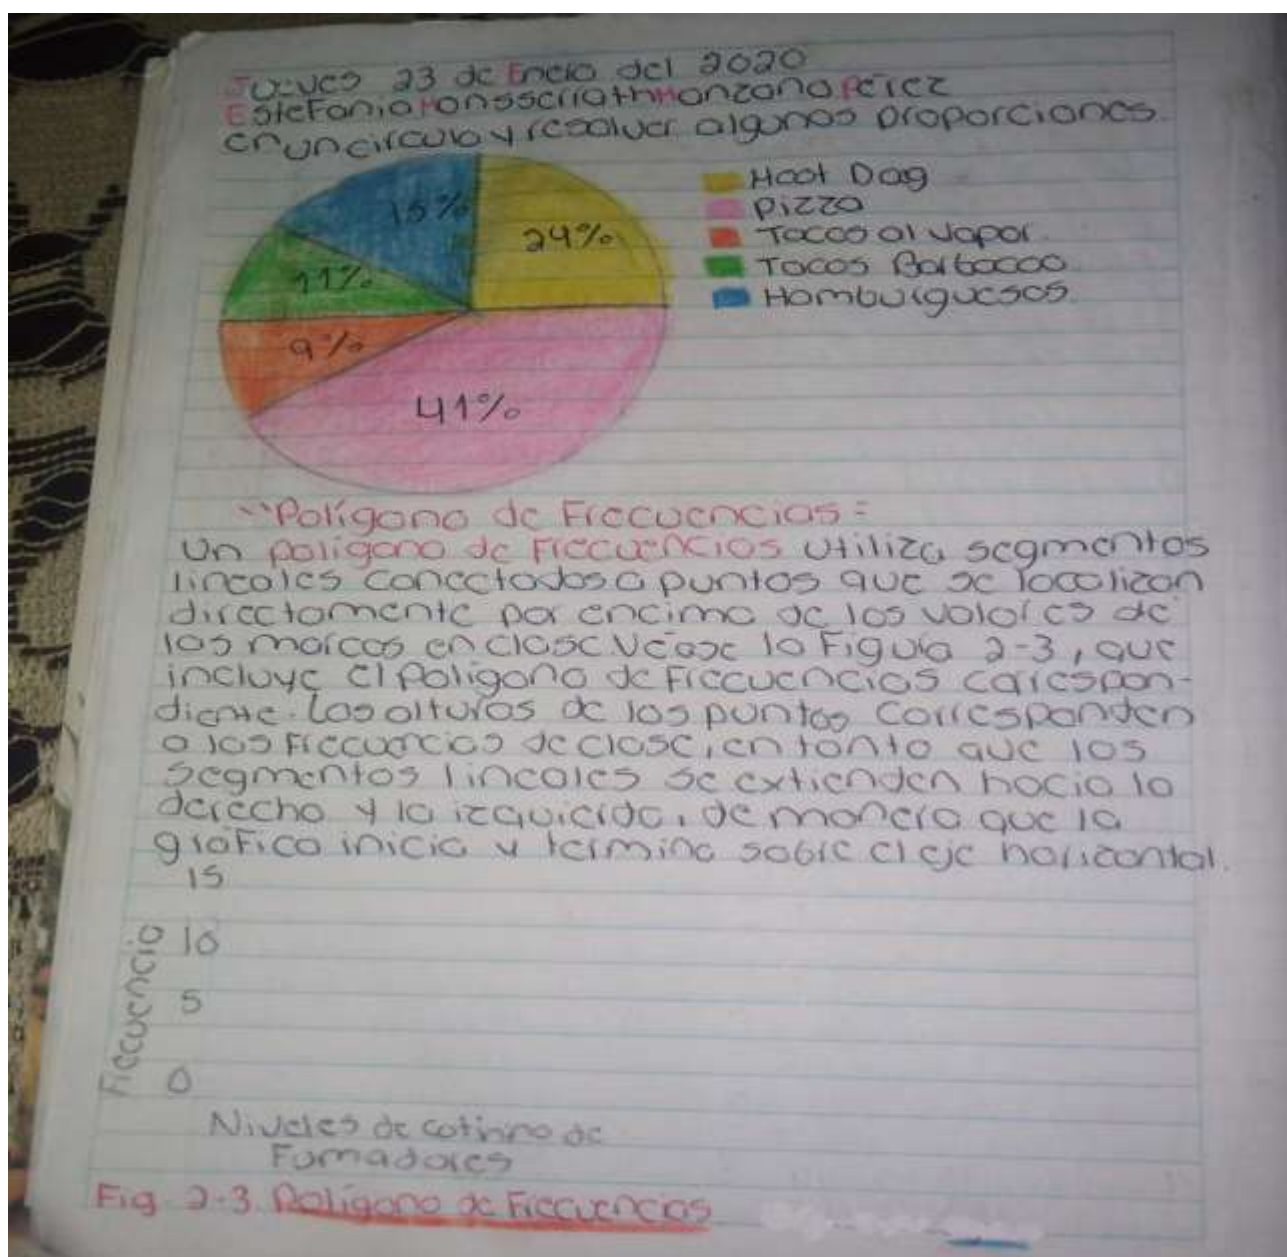 Jueves 23 de Enero del 2020
Estefania Monsserrath Manzano Pérez
en un circulo y resolver algunas proporciones.
15%
24%
11%
9%
41%
Hoot Dog
Pizza
Tacos al vapor
Tacos Barbacoa
Hamburguesas
Polígono de Frecuencias =
Un polígono de Frecuencias utiliza segmentos
lineales conectados a puntos que se localizan
directamente por encima de los valores de
las marcas en clase Véase la Figura 2-3, que
incluye el Polígono de Frecuencias correspon-
diente. Las alturas de los puntos corresponden
a las Frecuencias de clase, en tanto que los
segmentos lineales se extienden hacia la
derecha y la izquierda, de manera que la
gráfica inicia y termina sobre el eje horizontal.
15
10
5
0
Frecuencia
Niveles de cotinina de
Fumadores
Fig. 2-3. Polígono de Frecuencias